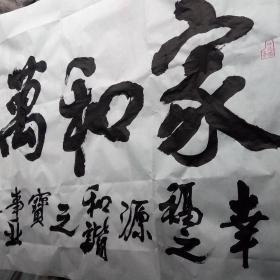 家和萬
幸福之源和諧之寶事业